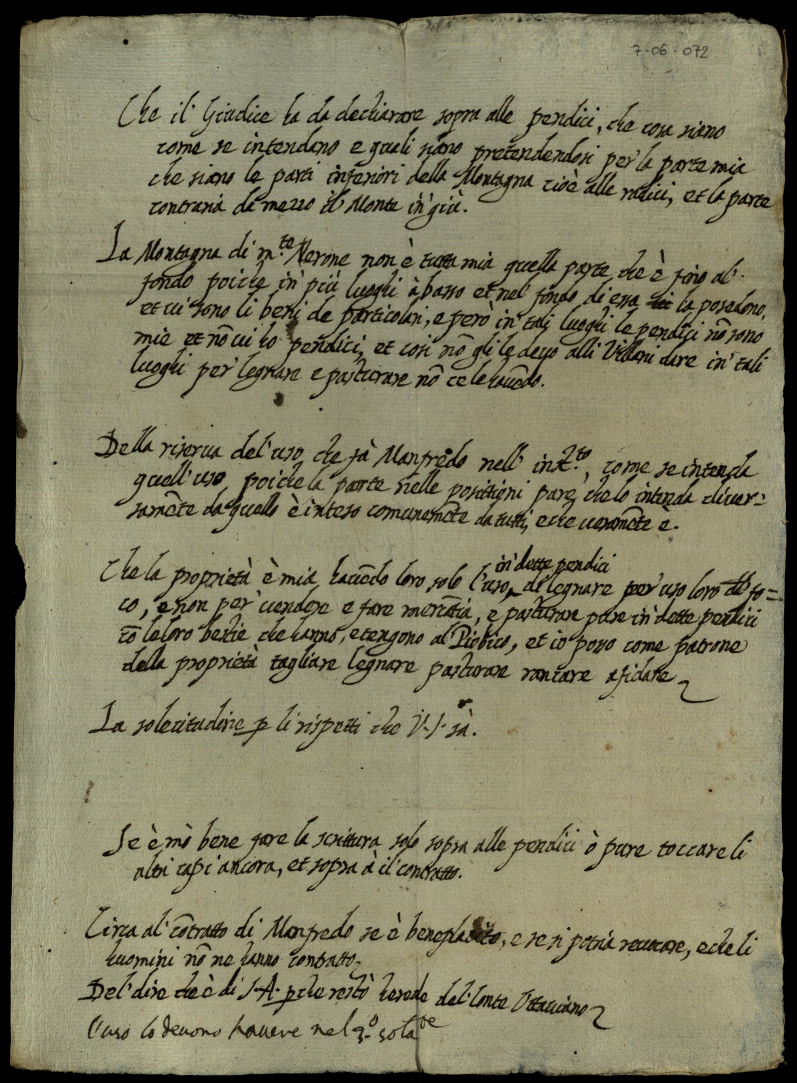 7-06-072
Che il Giudice ha da dechiarare sopra alle pendici, che cosa siano
come se intendano e quali siano pretendendosi per la parte mia
che siano le parti inferiori della Montagna cioè alle radici, et la parte
contraria da mezzo il Monte in giù.
La Montagna di m.te Nerone non è tutta mia quella parte che è fino al
fondo poiche in più luoghi à basso et nel fondo di essa la posedono,
et vi sono li beni de particolari, e però in tali luoghi le pendici nõ sono
mie et nõ vi ho pendici, et cosi nõ gli le devo alli Villani dare in tali
luoghi per legnare e pasturare nõ ce le havẽdo.
Della riserva del uso che fà Manfredo nell' inst.to, come se intenda
quell' uso, poiche la parte nelle positioni pare, che lo intenda diver=
samẽte da quello è inteso comunemẽte da tutti, e che veramẽte è.
in dette pendici
Che la proprietà è mia, havẽdo loro solo l'uso di legnare per uso loro fo=
co, e non per vendere e fare mercãtia, e pasturare pure in dette pendici
cõ le loro bestie che hanno, e tengono al Piobico, et io posso come patrone
della proprietà tagliare legnare pasturare roncare afidare
La solecitudine p li rispetti che V.S. sà.
Se è mò bene fare la scrittura solo sopra alle pendici ò pure toccare li
altri capi ancora, et sopra à il contratto.
Circa al cõtratto di Manfredo se è beneplacito, e se si potria revocare, e che li
huomini nõ ne hanno contratto.
Del dire che è di S.A. pche restò herede del Conte Ottaviano
L'uso lo devono havere nel 3.o